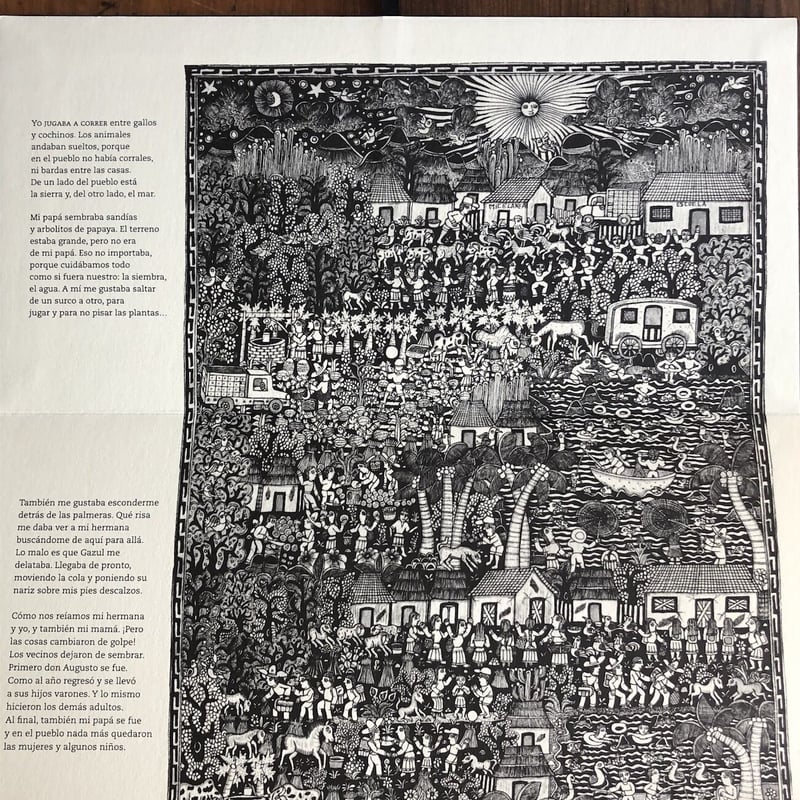 YO JUGABA A CORRER entre gallos
y cochinos. Los animales
andaban sueltos, porque
en el pueblo no había corrales,
ni bardas entre las casas.
De un lado del pueblo está
la sierra y, del otro lado, el mar.
Mi papá sembraba sandías
y arbolitos de papaya. El terreno
estaba grande, pero no era
de mi papá. Eso no importaba,
porque cuidábamos todo
como si fuera nuestro: la siembra,
el agua. A mí me gustaba saltar
de un surco a otro, para
jugar y para no pisar las plantas...
También me gustaba esconderme
detrás de las palmeras. Qué risa
me daba ver a mi hermana
buscándome de aquí para allá.
Lo malo es que Gazul me
delataba. Llegaba de pronto,
moviendo la cola y poniendo su
nariz sobre mis pies descalzos.
Cómo nos reíamos mi hermana
y yo, y también mi mamá. ¡Pero
las cosas cambiaron de golpe!
Los vecinos dejaron de sembrar.
Primero don Augusto se fue.
Como al año regresó y se llevó
a sus hijos varones. Y lo mismo
hicieron los demás adultos.
Al final, también mi papá se fue
y en el pueblo nada más quedaron
las mujeres y algunos niños.
ESCUELA